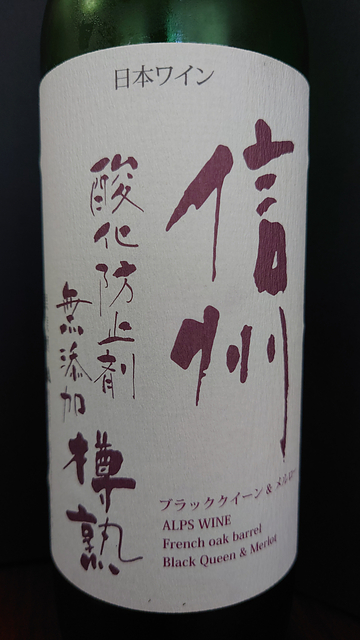 日本ワイン
信州
酸化防止剤
無添加
樽熟
ブラッククイーン & メルロー
ALPS WINE
French oak barrel
Black Queen & Merlot